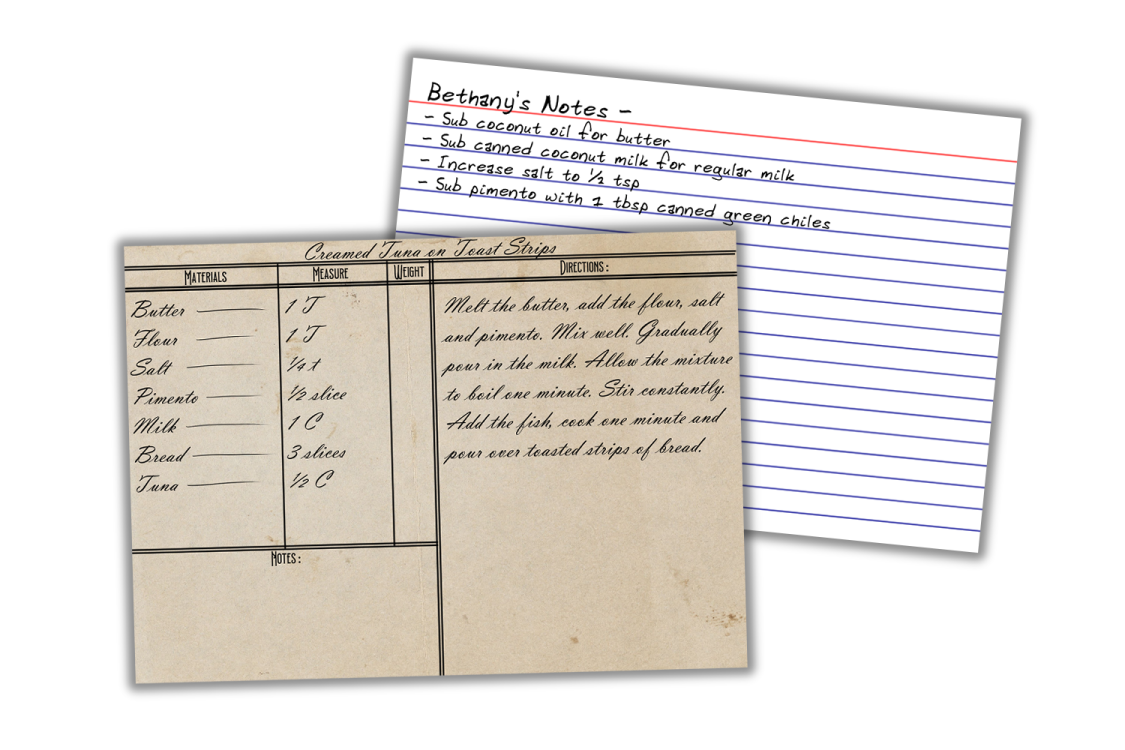 Bethany's Notes -
- Sub coconut oil for butter
- Sub canned coconut milk for regular milk
- Increase salt to ½ tsp
- Sub pimento with 1 tbsp canned green chiles
Creamed Tuna on Toast Strips
MATERIALS MEASURE WEIGHT
Butter 1 T
Flour 1 T
Salt ¼ t
Pimento ½ slice
Milk 1 C
Bread 3 slices
Tuna ½ C
NOTES:
DIRECTIONS:
Melt the butter, add the flour, salt
and pimento. Mix well. Gradually
pour in the milk. Allow the mixture
to boil one minute. Stir constantly.
Add the fish, cook one minute and
pour over toasted strips of bread.